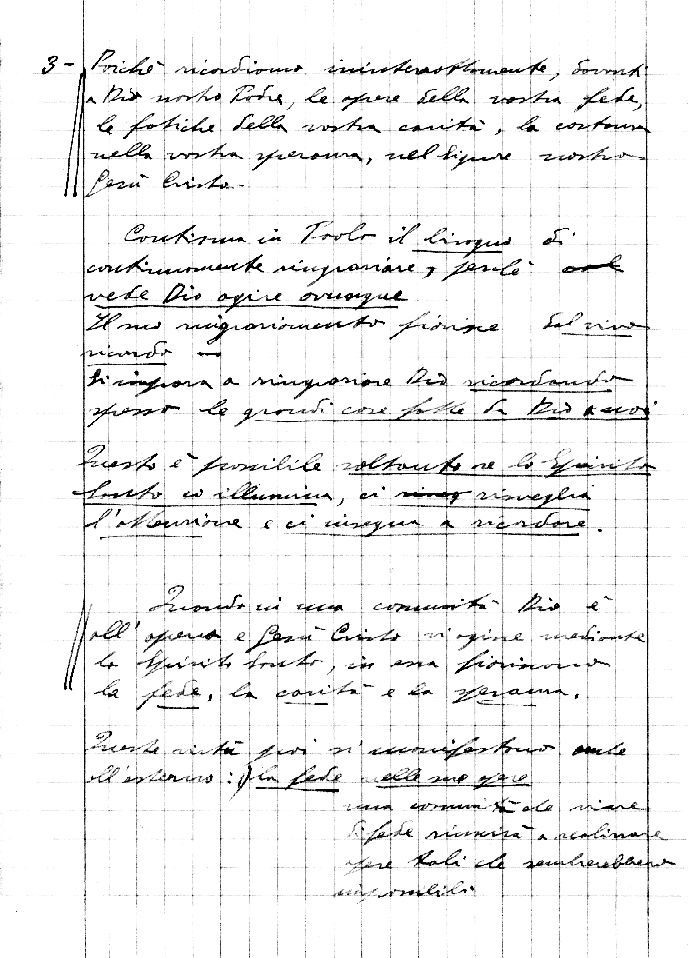 3- Poiché ricordiamo ininterrottamente, davanti
a Dio nostro Padre, le opere della vostra fede,
le fatiche della vostra carità, la costanza
nella vostra speranza, nel Signore nostro
Gesù Cristo.
Continua in Paolo il bisogno di
continuamente ringraziare, perché
vede Dio agire ovunque
Il suo ringraziamento fiorisce dal vivo
ricordo —
Si impara a ringraziare Dio ricordando
spesso le grandi cose fatte da Dio a noi
Questo è possibile soltanto se lo Spirito
Santo ci illumina, ci risveglia
l'attenzione e ci insegna a ricordare.
Quando in una comunità Dio è
all'opera e Gesù Cristo vi agisce mediante
lo Spirito Santo, in essa fioriscono
la fede, la carità e la speranza.
Queste virtù poi si manifestano anche
all'esterno: la fede nelle sue opere
una comunità che vive
di fede riuscirà a realizzare
opere tali che sembrerebbero
impossibili